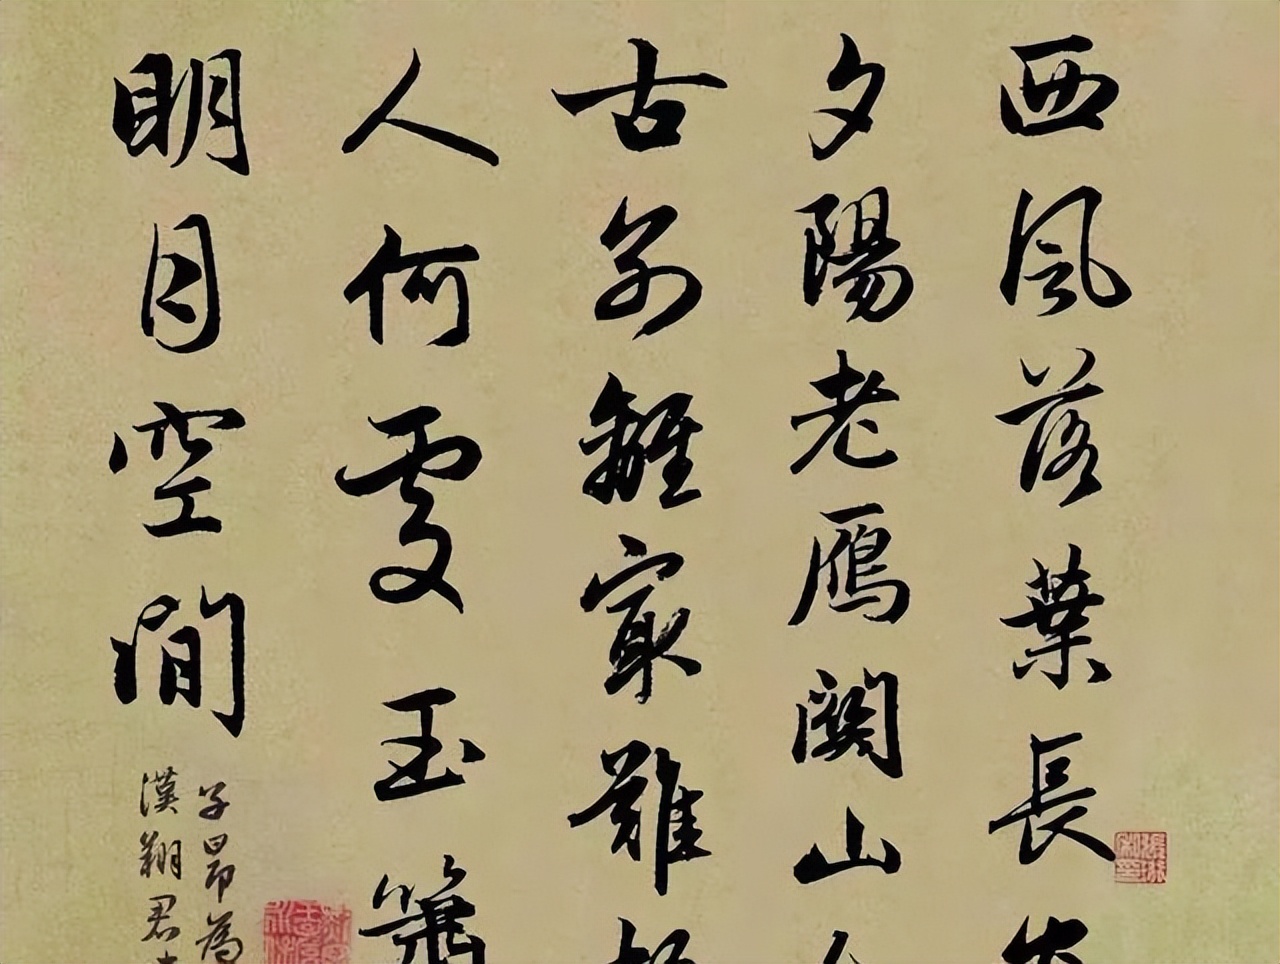 西風落葉長
夕陽老鴈關山
古別離最難
人何處玉簫
明月空閒
子昂為
漢翔君